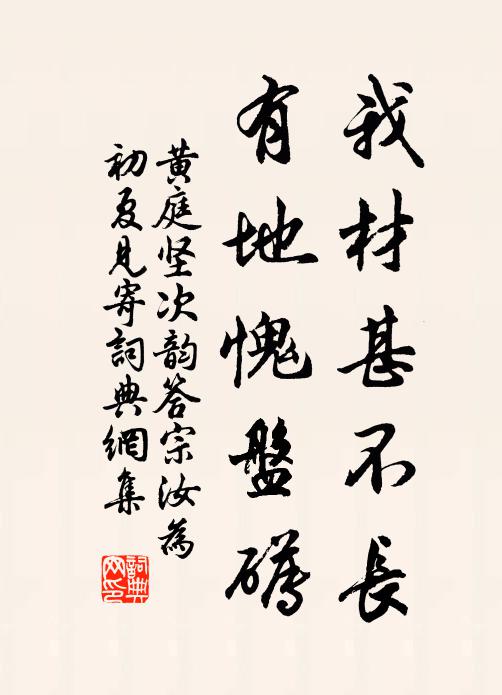 我材甚不長
有地愧盤礴
黄庭坚次韵答宗汝為
初夏見寄詞典網集
詞典
网印